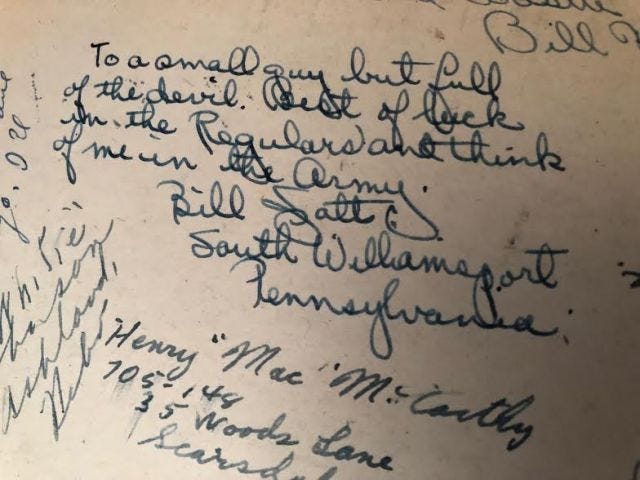 Bill
To a small guy but full
of the devil. Best of luck
in the Regulars and think
of me in the Army.
Bill
South Williamsport
Pennsylvania.
Henry "Mac" McCarthy
705-148
35 Woods Lane
Ashland,